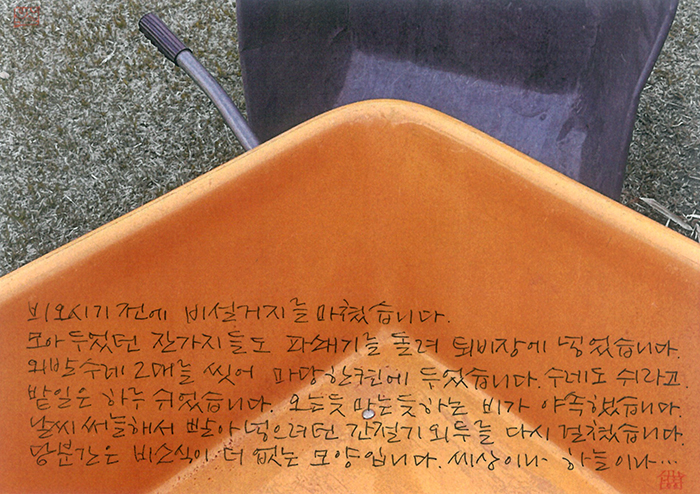 비오시기 전에 비설거지를 마쳤습니다.
모아 두었던 잔가지들도 파쇄기를 돌려 퇴비장에 넣었습니다.
외발수레 2대를 씻어 마당한켠에 두었습니다. 수레도 쉬라고
밭일은 하루 쉬었습니다. 오는듯 마는듯하는 비가 야속했습니다.
날씨 써늘해서 빨아 넣으려던 간절기 외투를 다시 걸쳤습니다.
당분간은 비소식이 더 없는 모양입니다. 세상이나 하늘이나…